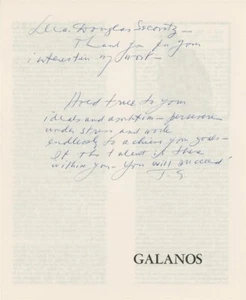 Douglas
Thank you for your
interest in my work -
Hold true to your
ideals and ambition - persevere
under stress and work
endlessly to achieve your goals -
If the talent is there
within you - You will succeed
J. G.
GALANOS